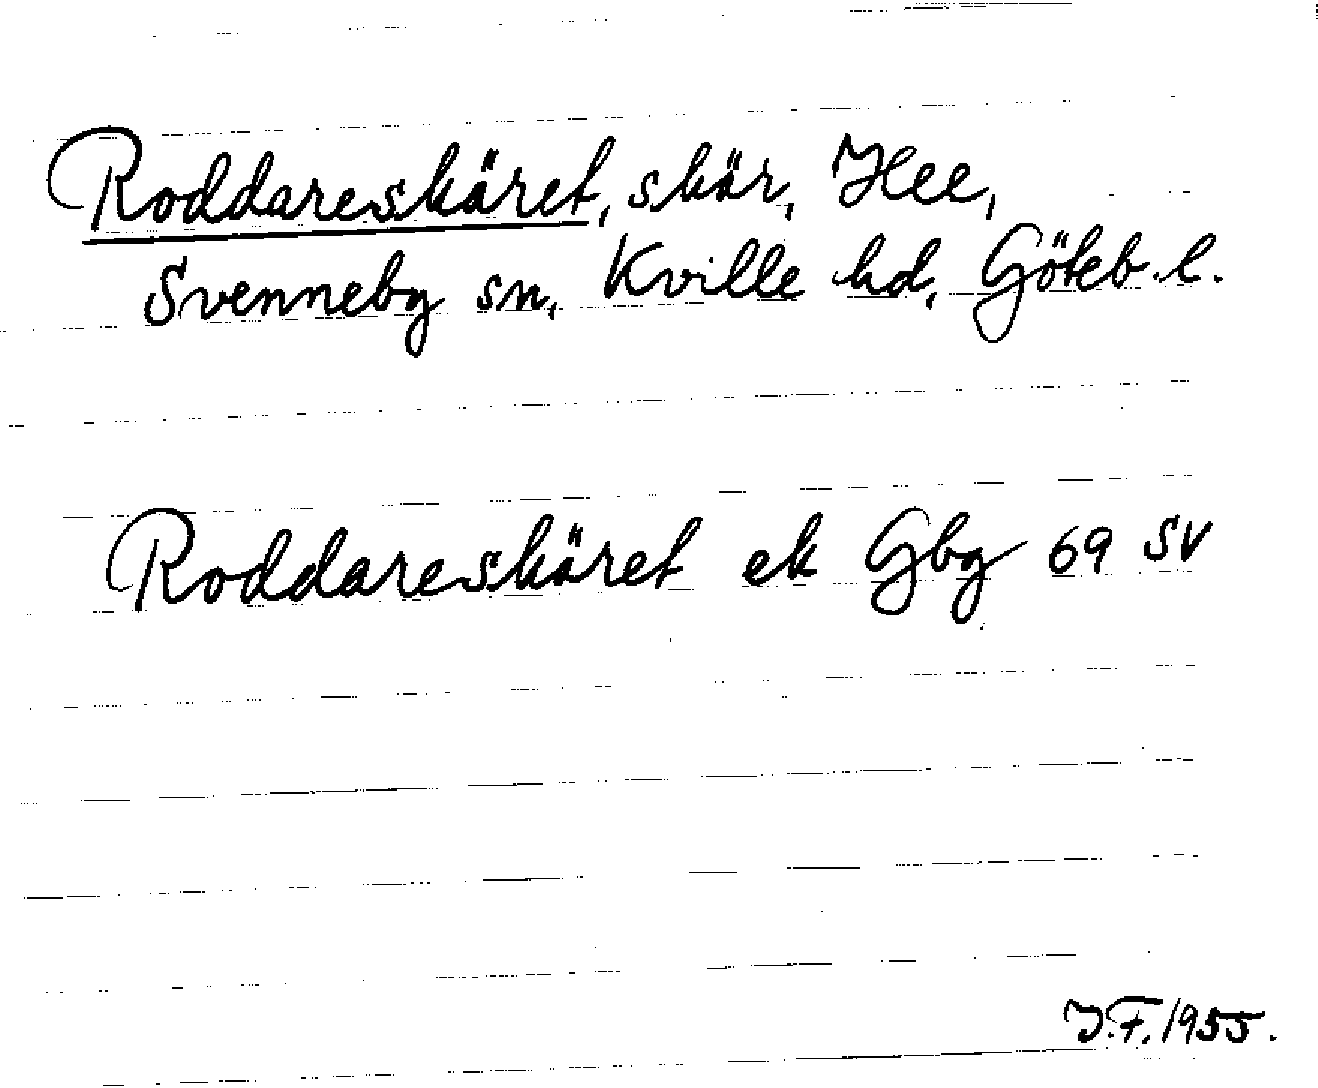 Roddareskäret, skär, Hee,
Svenneby sn, Kville hd, Göteb. l.
Roddareskäret ek Gbg 69 SV
J.F. 1955.